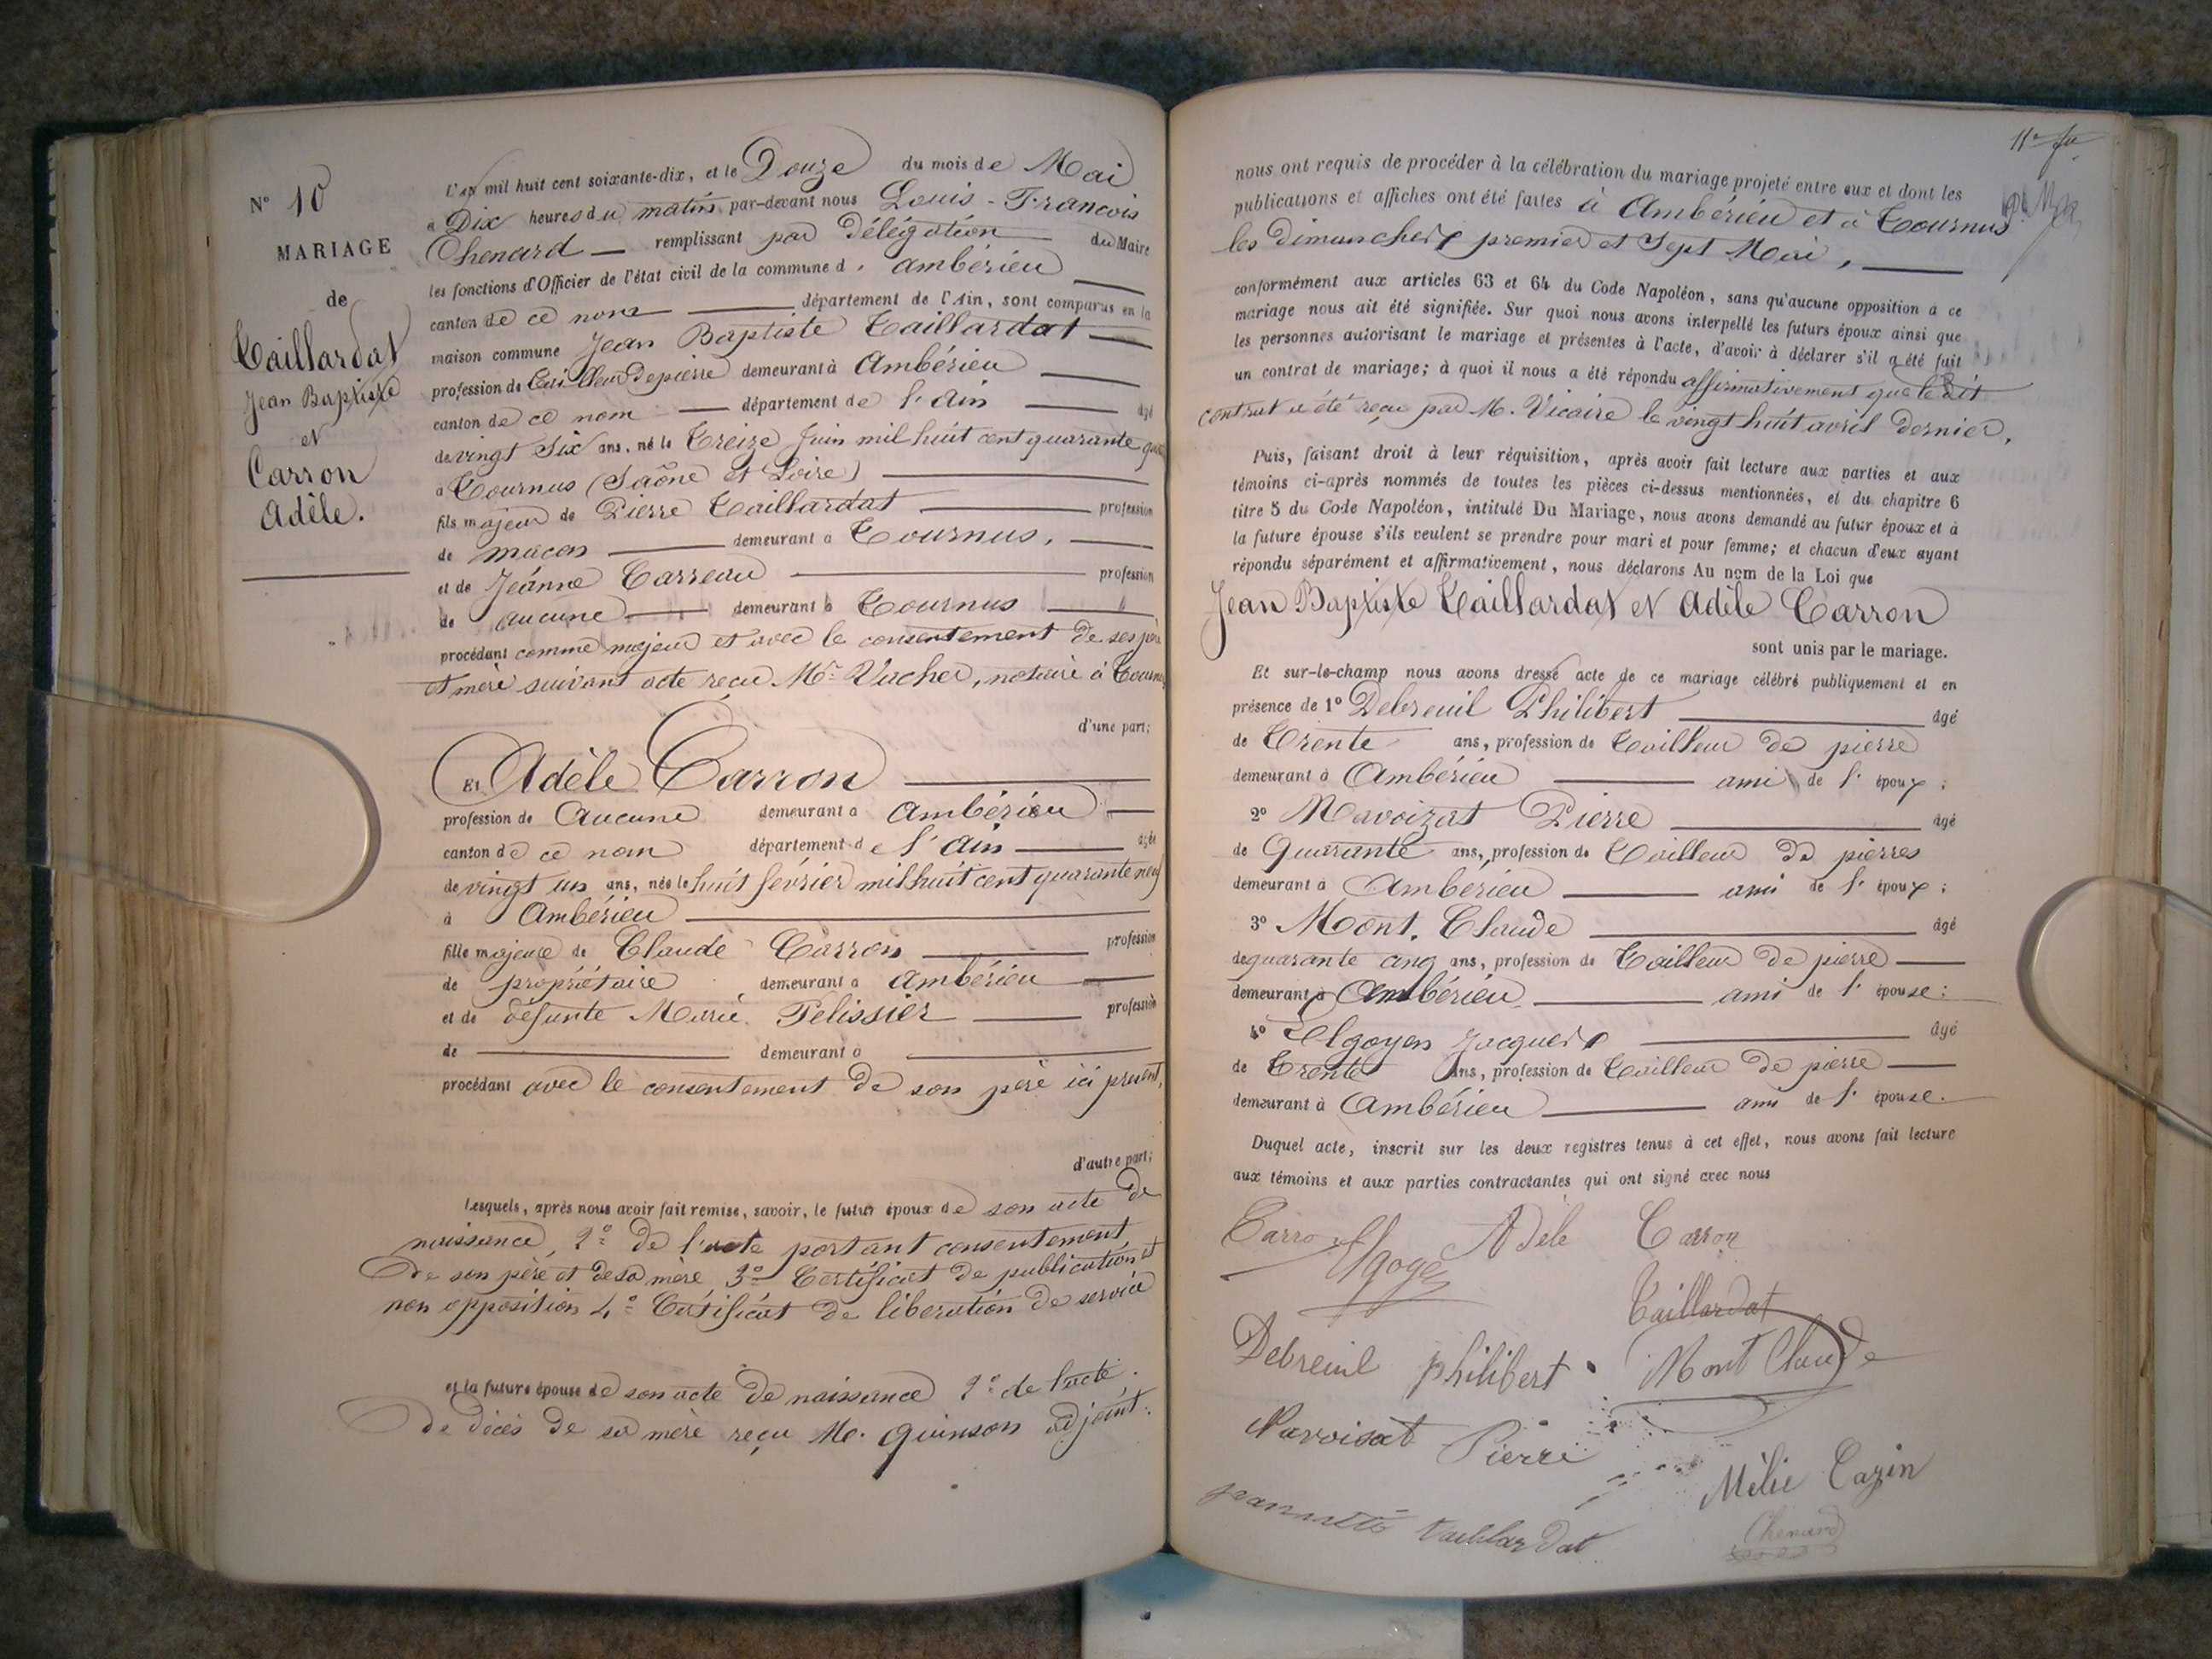 N° 10
MARIAGE
de
Taillardat
Jean Baptiste
et
Carron
Adèle.
L'an mil huit cent soixante-dix, et le Douze du mois de Mai
a Dix heures du matin par-devant nous Louis - Francois
Chenard — remplissant par délégation du Maire
les fonctions d'Officier de l'état civil de la commune d' ambérieu
canton de ce nom département de l'Ain, sont comparus en la
maison commune Jean Baptiste Taillardat
profession de Tailleur de pierre demeurant à Ambérieu
canton de ce nom — département de l'Ain âgé
de vingt Six ans, né le Treize Juin mil huit cent quarante
a Tournus (Saône et Loire)
fils majeur de Pierre Taillardat profession
de maçon demeurant a Tournus,
et de Jeanne Carreau profession
de aucune demeurant à Tournus
procédant comme majeur et avec le consentement de ses père
et mère suivant acte reçu Mr Vacher, notaire à
d'une part;
Et Adèle Carron
profession de Aucune demeurant a Ambérieu
canton de ce nom département de l'Ain âgée
de vingt un ans, née le huit février mil huit cent quarante neuf
à Ambérieu
fille majeure de Claude Carron profession
de propriétaire demeurant a Ambérieu
et de défunte Marie Pelissier profession
de demeurant à
procédant avec le consentement de son père ici présent,
d'autre part;
Lesquels, après nous avoir fait remise, savoir, le futur époux de son acte de
naissance, 2° de l'acte portant consentement
de son père et de sa mère 3° Certificat de publication et
non opposition 4° Certificat de libération de service
et la future épouse de son acte de naissance 2° de l'acte
de décès de sa mère reçu M. Quinson adjoint.
11e fe
nous ont requis de procéder à la célébration du mariage projeté entre eux et dont les
publications et affiches ont été faites à Ambérieu et à Tournus
les dimanches premier et Sept Mai,
conformément aux articles 63 et 64 du Code Napoléon, sans qu'aucune opposition a ce
mariage nous ait été signifiée. Sur quoi nous avons interpellé les futurs époux ainsi que
les personnes autorisant le mariage et présentes à l'acte, d'avoir à déclarer s'il a été fait
un contrat de mariage; à quoi il nous a été répondu affirmativement que le dit
contrat a été reçu par M. Vicaire le vingt huit avril dernier,
Puis, faisant droit à leur réquisition, après avoir fait lecture aux parties et aux
témoins ci-après nommés de toutes les pièces ci-dessus mentionnées, et du chapitre 6
titre 5 du Code Napoléon, intitulé Du Mariage, nous avons demandé au futur époux et à
la future épouse s'ils veulent se prendre pour mari et pour femme; et chacun d'eux ayant
répondu séparément et affirmativement, nous déclarons Au nom de la Loi que
Jean Baptiste Taillardat et Adèle Carron
sont unis par le mariage.
Et sur-le-champ nous avons dressé acte de ce mariage célébré publiquement et en
présence de 1° Debreuil Philibert âgé
de Trente ans, profession de Tailleur de pierre
demeurant à Ambérieu ami de l'époux;
2° Navoizat Pierre âgé
de Quarante ans, profession de Tailleur de pierres
demeurant à Ambérieu ami de l'époux;
3° Mont, Claude âgé
de quarante cinq ans, profession de Tailleur de pierre
demeurant à Ambérieu ami de l'épouse;
4° Elgoyen Jacques âgé
de Trente ans, profession de Tailleur de pierre
demeurant à Ambérieu ami de l'épouse.
Duquel acte, inscrit sur les deux registres tenus à cet effet, nous avons fait lecture
aux témoins et aux parties contractantes qui ont signé avec nous
Carron Elgoyen Adele Carron
Taillardat
Debreuil philibert Mont Claude
Navoisat Pierre
Mélie Cazin
jeannette taillardat
Chenard